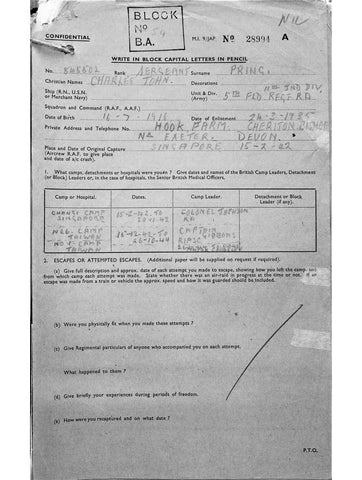 BLOCK
Nº 54
B.A.
NIL
CONFIDENTIAL
M.I. 9/JAP. Nº 28994 A
WRITE IN BLOCK CAPITAL LETTERS IN PENCIL
No. Rank SERGEANT Surname PRING.
Christian Names CHARLES JOHN. Decorations
Ship (R.N., U.S.N. or Merchant Navy) Unit & Div. (Army) 5TH FLD REGT RA
Squadron and Command (R.A.F., A.A.F.)
Date of Birth 16-7-1916 Date of Enlistment
Private Address and Telephone Number HOOK FARM. CHERITON BISHOP
Nr EXETER. DEVON.
Place and Date of Original Capture SINGAPORE 15-2-42
(Aircrew R.A.F. to give place and date of a/c crash).
1. What camps, detachments or hospitals were you in? Give dates and names of the British Camp Leaders, Detachment (or Block) Leaders or, in the case of hospitals, the Senior British Medical Officers.
Camp or Hospital. Dates. Camp Leader. Detachment or Block Leader (if any).
CHANGI CAMP 15-2-42. TO COLONEL
SINGAPORE RA
CAMP TO CAPTAIN
TAIWAN GIBBONS
CAMP
TAIWAN
2. ESCAPES OR ATTEMPTED ESCAPES. (Additional paper will be supplied on request if required).
(a) Give full description and approx. date of each attempt you made to escape, showing how you left the camp and from which camp each attempt was made. State whether there was an air-raid in progress at the time or not. If an escape was made from a train or vehicle the approx. speed and how it was guarded should be included.
(b) Were you physically fit when you made these attempts?
(c) Give Regimental particulars of anyone who accompanied you on each attempt.
What happened to them?
(d) Give briefly your experiences during periods of freedom.
How were you recaptured and on what date?
P.T.O.